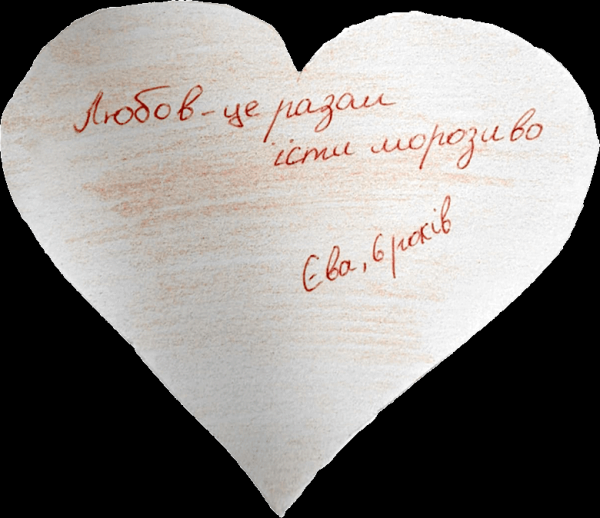 Любов - це разом
їсти морозиво
Єва, 6 років